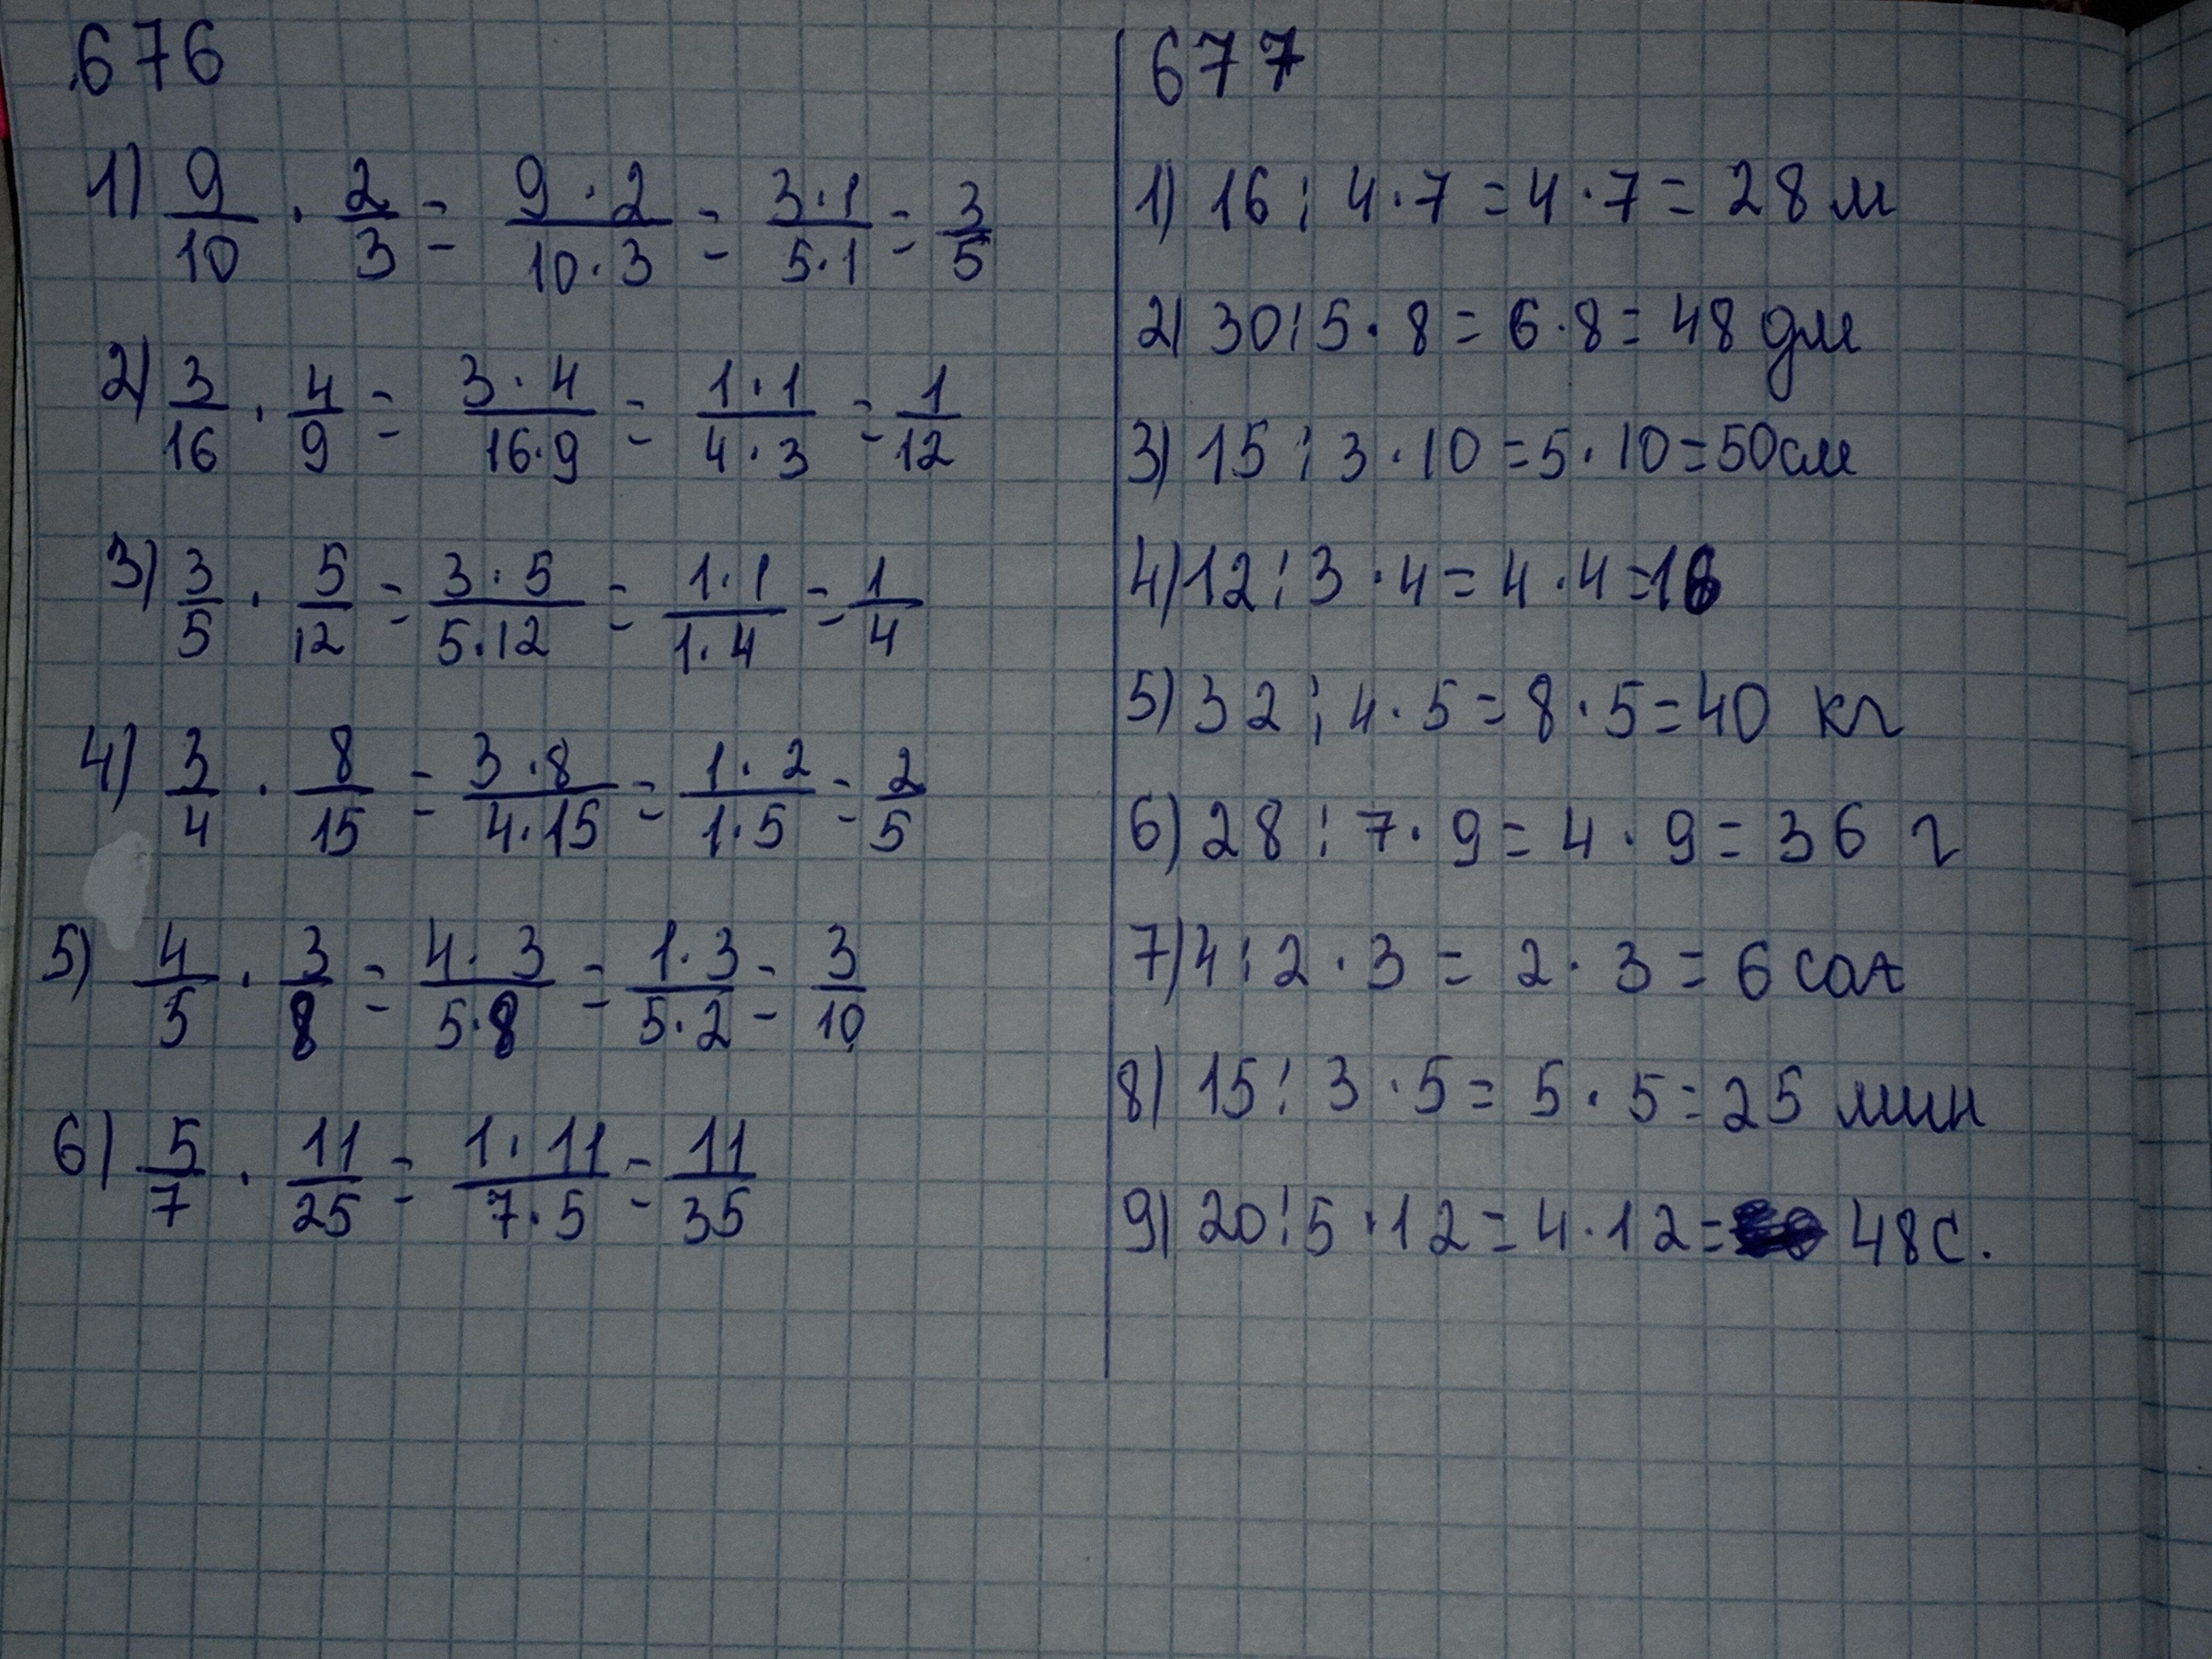 676
1) 9/10 · 2/3 = 9·2/10·3 = 3·1/5·1 = 3/5
2) 3/16 · 4/9 = 3·4/16·9 = 1·1/4·3 = 1/12
3) 3/5 · 5/12 = 3·5/5·12 = 1·1/1·4 = 1/4
4) 3/4 · 8/15 = 3·8/4·15 = 1·2/1·5 = 2/5
5) 4/5 · 3/8 = 4·3/5·8 = 1·3/5·2 = 3/10
6) 5/7 · 11/25 = 1·11/7·5 = 11/35
677
1) 16:4·7=4·7=28 м
2) 30:5·8=6·8=48 дм
3) 15:3·10=5·10=50см
4) 12:3·4=4·4=16
5) 32:4·5=8·5=40 кг
6) 28:7·9=4·9=36 г
7) 4:2·3=2·3=6 сағ
8) 15:3·5=5·5=25 мин
9) 20:5·12=4·12= 48с.